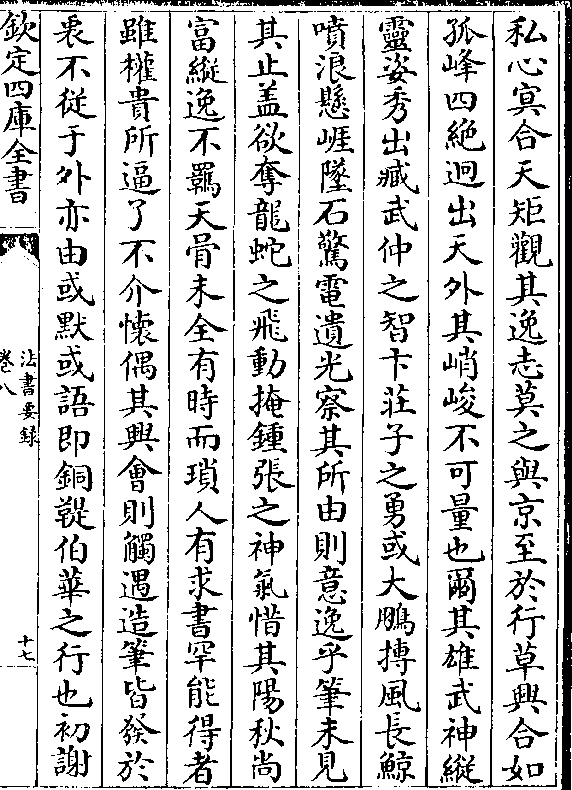 私心㝠合天矩觀其逸志莫之與京至於行草興合如
孤峰四絶迥出天外其峭峻不可量也爾其雄武神縱
靈姿秀出臧武仲之智卞莊子之勇或大鵬摶風長鯨
噴浪懸崖墜石驚電遺光察其所由則意逸乎筆未見
其止盖欲奪龍蛇之飛動掩鍾張之神氣惜其陽秋尚
富縱逸不羈天骨未全有時而瑣人有求書罕能得者
雖權貴所逼了不介懐偶其興會則觸遇造筆皆發於
衷不從于外亦由或默或語即銅鞮伯華之行也初謝
欽定四庫全書
法書要録
卷八
十七